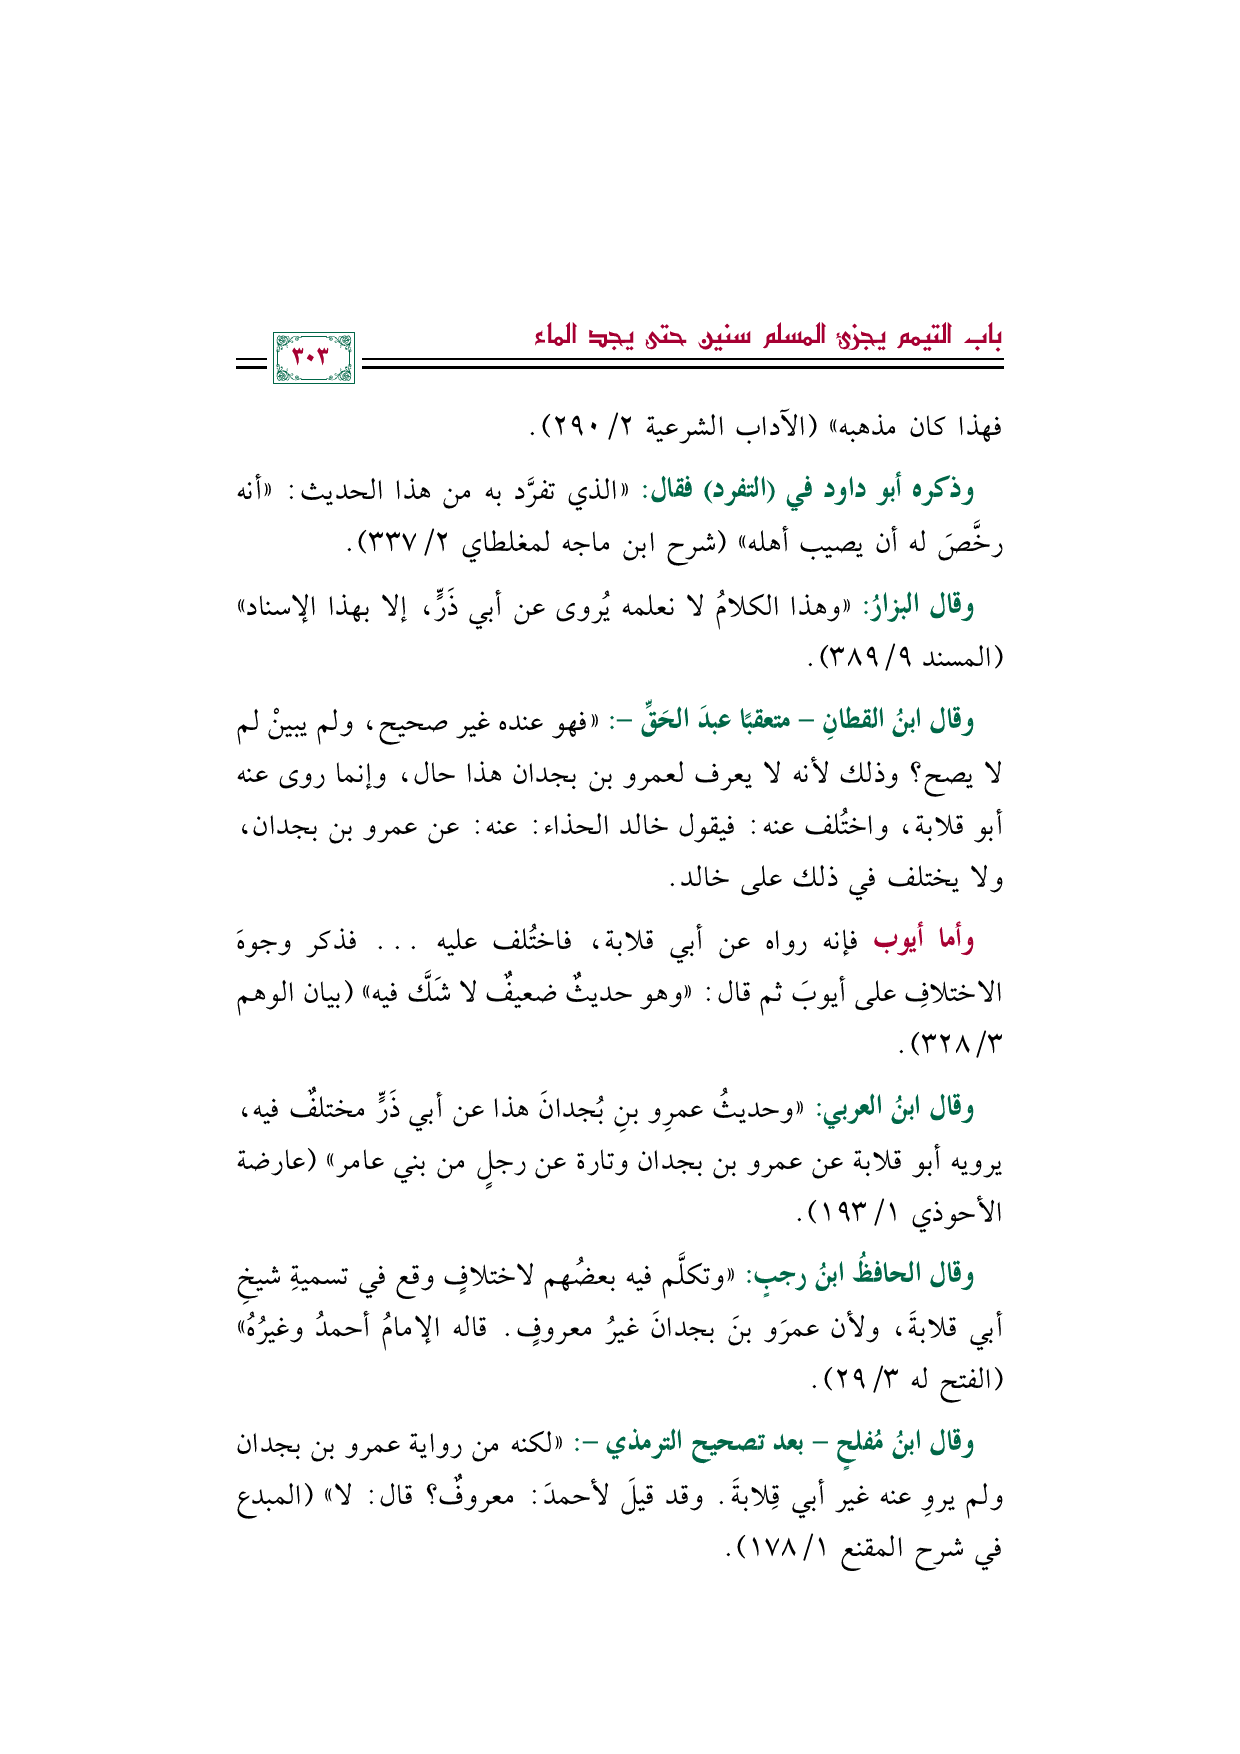 باب التيمم يجزئ المسلم سنين حتى يجد الماء
٣٠٣
فهذا كان مذهبه» (الآداب الشرعية ٢/ ٢٩٠).
وذكره أبو داود في (التفرد) فقال: «الذي تفرَّد به من هذا الحديث: «أنه
رخَّصَ له أن يصيب أهله» (شرح ابن ماجه لمغلطاي ٢/ ٣٣٧).
وقال البزارُ: «وهذا الكلامُ لا نعلمه يُروى عن أبي ذَرٍّ، إلا بهذا الإسناد»
(المسند ٩/ ٣٨٩).
وقال ابنُ القطانِ – متعقبًا عبدَ الحَقِّ –: «فهو عنده غير صحيح، ولم يبينْ لم
لا يصح؟ وذلك لأنه لا يعرف لعمرو بن بجدان هذا حال، وإنما روى عنه
أبو قلابة، واختُلف عنه: فيقول خالد الحذاء: عنه: عن عمرو بن بجدان،
ولا يختلف في ذلك على خالد.
وأما أيوب فإنه رواه عن أبي قلابة، فاختُلف عليه ... فذكر وجوهَ
الاختلافِ على أيوبَ ثم قال: «وهو حديثٌ ضعيفٌ لا شَكَّ فيه» (بيان الوهم
٣/ ٣٢٨).
وقال ابنُ العربي: «وحديثُ عمرِو بنِ بُجدانَ هذا عن أبي ذَرٍّ مختلفٌ فيه،
يرويه أبو قلابة عن عمرو بن بجدان وتارة عن رجلٍ من بني عامر» (عارضة
الأحوذي ١/ ١٩٣).
وقال الحافظُ ابنُ رجبٍ: «وتكلَّم فيه بعضُهم لاختلافٍ وقع في تسميةِ شيخِ
أبي قلابةَ، ولأن عمرَو بنَ بجدانَ غيرُ معروفٍ. قاله الإمامُ أحمدُ وغيرُهُ»
(الفتح له ٣/ ٢٩).
وقال ابنُ مُفلحٍ – بعد تصحيح الترمذي –: «لكنه من رواية عمرو بن بجدان
ولم يروِ عنه غير أبي قِلابةَ. وقد قيلَ لأحمدَ: معروفٌ؟ قال: لا» (المبدع
في شرح المقنع ١/ ١٧٨).